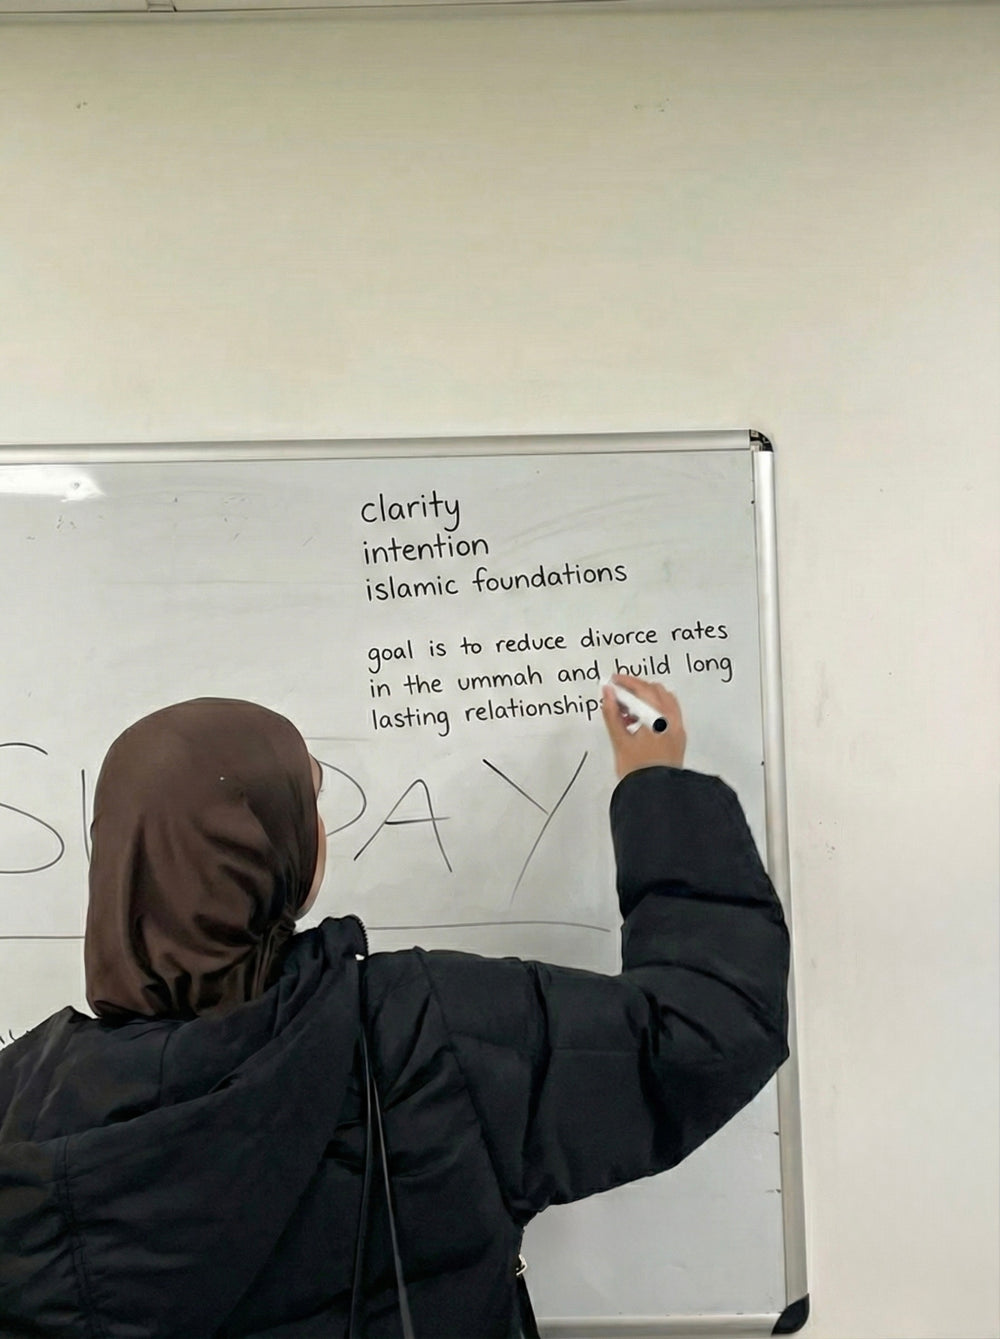 clarity
intention
islamic foundations
goal is to reduce divorce rates
in the ummah and build long
lasting relationships